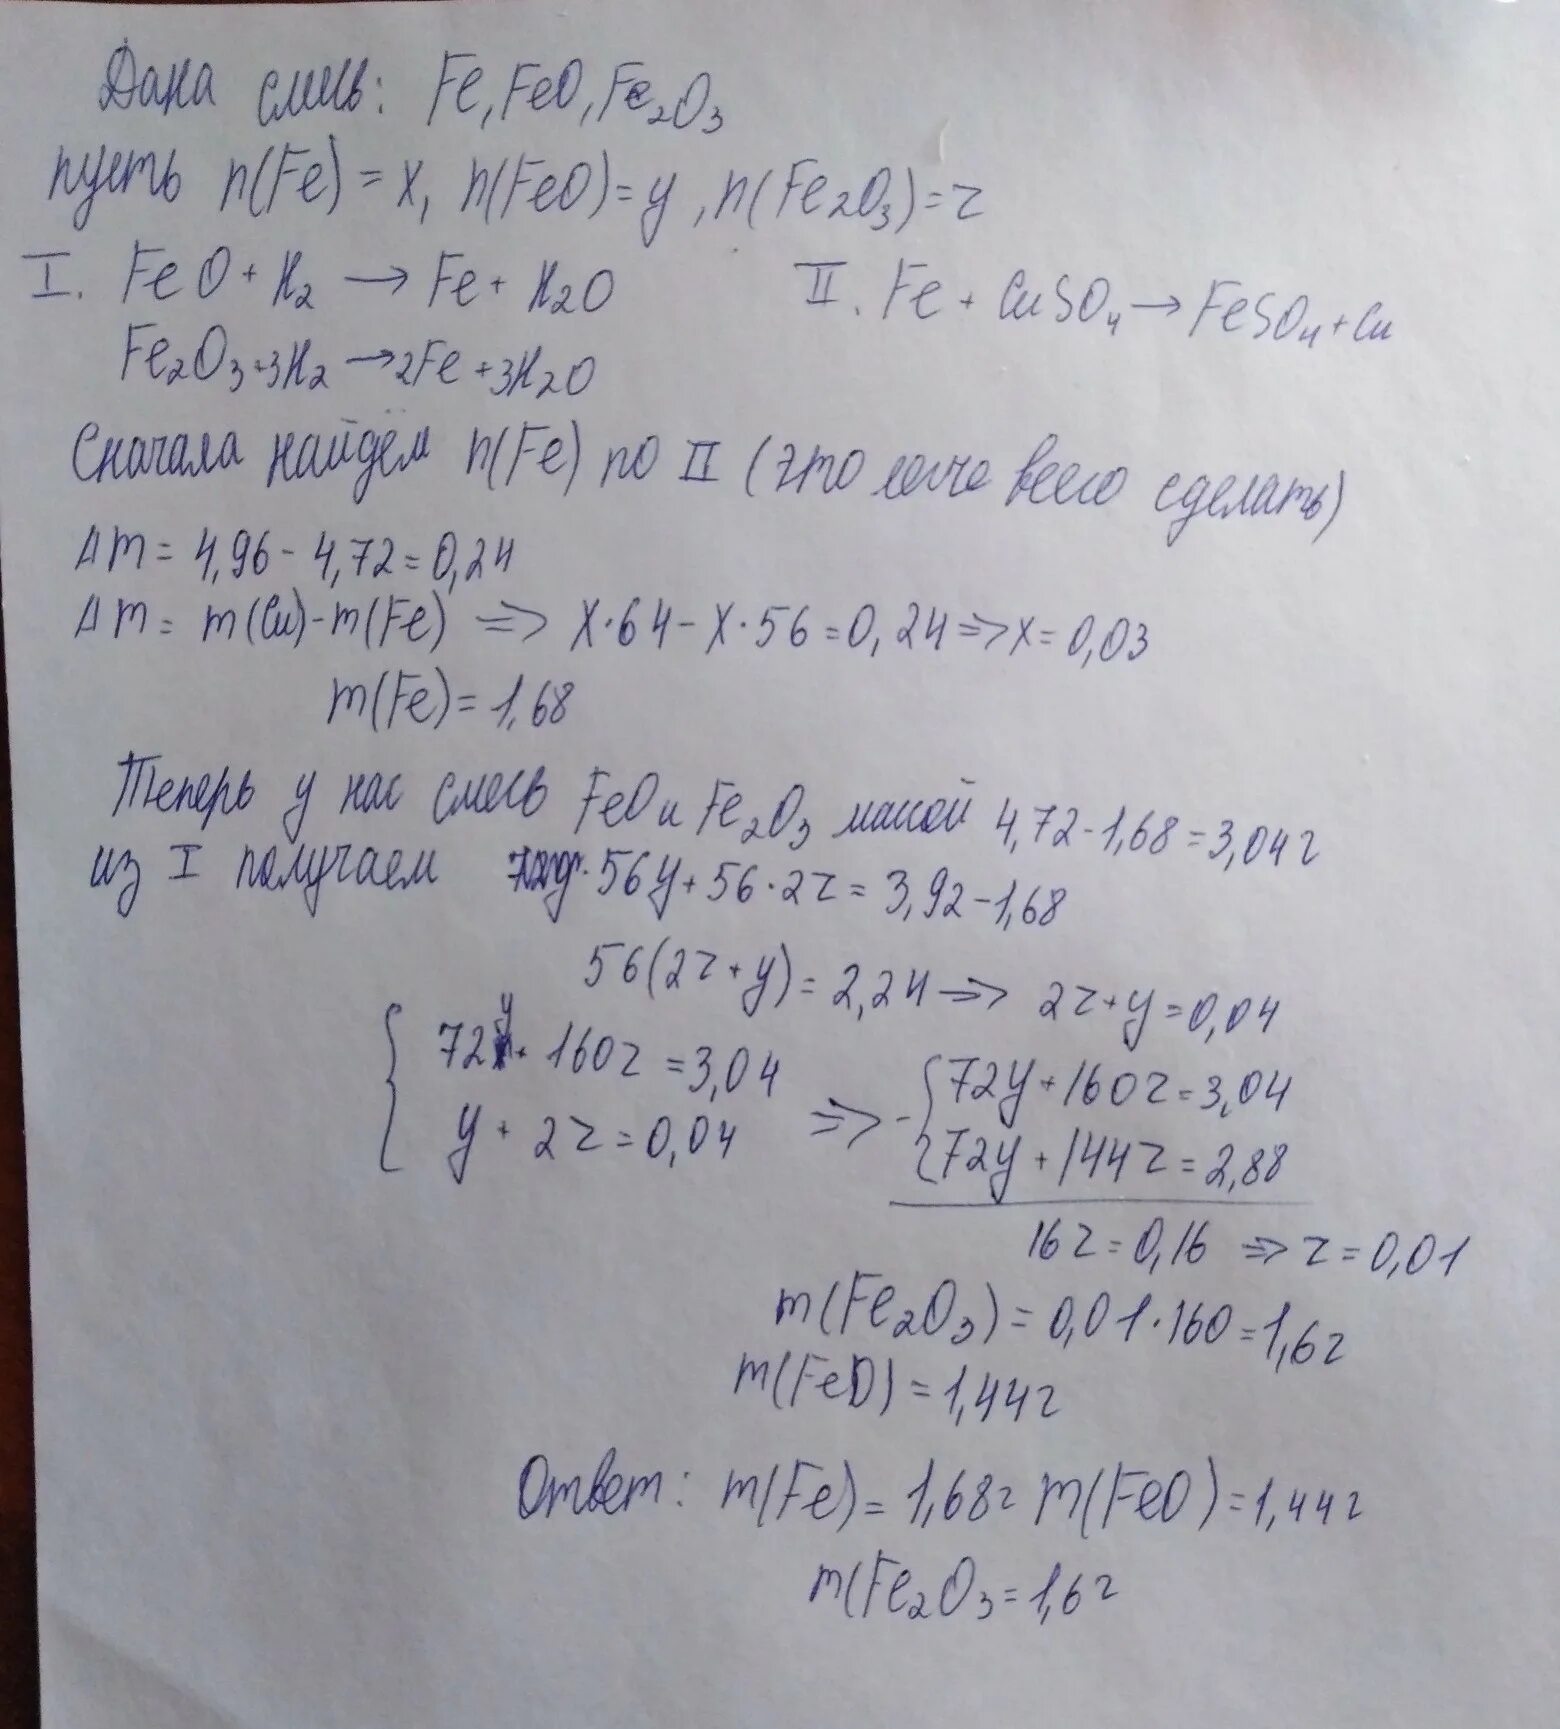 Дана смесь: Fe, FeO, Fe₂O₃
пусть n(Fe) = x, n(FeO) = y, n(Fe₂O₃) = z
I. FeO + H₂ → Fe + H₂O
II. Fe + CuSO₄ → FeSO₄ + Cu
Fe₂O₃ + 3H₂ → 2Fe + 3H₂O
Сначала найдём n(Fe) по II (это легче всего сделать)
Δm = 4,96 - 4,72 = 0,24
Δm = m(Cu) - m(Fe) => x·64 - x·56 = 0,24 => x = 0,03
m(Fe) = 1,68
Теперь у нас смесь FeO и Fe₂O₃ массой 4,72 - 1,68 = 3,04г
из I получаем 56y + 56·2z = 3,92 - 1,68
56(2z + y) = 2,24 => 2z + y = 0,04
{ 72y + 160z = 3,04
y + 2z = 0,04
=> - { 72y + 160z = 3,04
72y + 144z = 2,88
16z = 0,16 => z = 0,01
m(Fe₂O₃) = 0,01·160 = 1,6г
m(FeO) = 1,44г
Ответ: m(Fe) = 1,68г m(FeO) = 1,44г
m(Fe₂O₃ = 1,6г